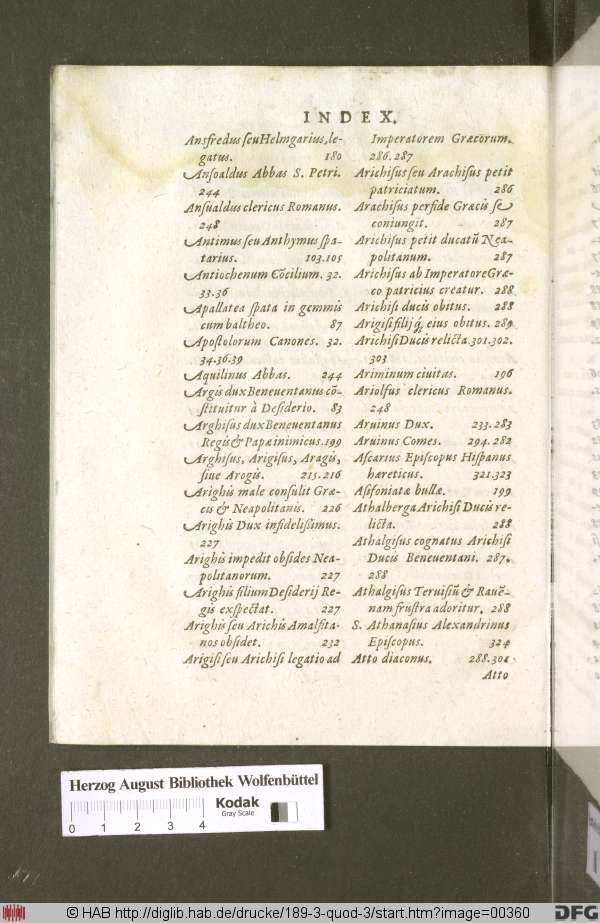 INDEX.
Ansfredus seu Helmgarius, le-
gatus. 180
Ansoaldus Abbas S. Petri.
244
Ansualdus clericus Romanus.
248
Antimus seu Anthymus spa-
tarius. 103.105
Antiochenum Cōcilium. 32.
33.36
Apallatea spata in gemmis
cum baltheo. 87
Apostolorum Canones. 32.
34.36.39
Aquilinus Abbas. 244
Argis dux Beneuentanus cō-
stituitur à Desiderio. 83
Arghisus dux Beneuentanus
Regis & Papæ inimicus. 199
Arghisus, Arigisus, Aragis,
siue Arogis. 215.216
Arighis male consulit Græ-
cis & Neapolitanis. 226
Arighis Dux infidelissimus.
227
Arighis impedit obsides Nea-
politanorum. 227
Arighis filium Desiderij Re-
gis exspectat. 227
Arighis seu Arichis Amalfita-
nos obsidet. 232
Arigisi seu Arichisi legatio ad
Imperatorem Græcorum.
286.287
Arichisus seu Arachisus petit
patriciatum. 286
Arachisus perfide Græcis se
coniungit. 287
Arichisus petit ducatū Nea-
politanum. 287
Arichisus ab Imperatore Græ-
co patricius creatur. 288
Arichisi ducis obitus. 288
Arigisi filijq́, eius obitus. 289
Arichisi Ducis relicta. 301.302.
303
Ariminum ciuitas. 196
Ariolfus clericus Romanus.
248
Aruinus Dux. 233.283
Aruinus Comes. 294.282
Ascarius Episcopus Hispanus
hæreticus. 321.323
Asifoniatæ bullæ. 199
Athalberga Arichisi Ducis re-
licta. 288
Athalgisus cognatus Arichisi
Ducis Beneuentani. 287.
288
Athalgisus Teruisiū & Rauē-
nam frustra adoritur. 288
S. Athanasius Alexandrinus
Episcopus. 324
Atto diaconus. 288.301
Atto
Herzog August Bibliothek Wolfenbüttel
Kodak
Gray Scale
0 1 2 3 4
© HAB http://diglib.hab.de/drucke/189-3-quod-3/start.htm?image=00360
DFG